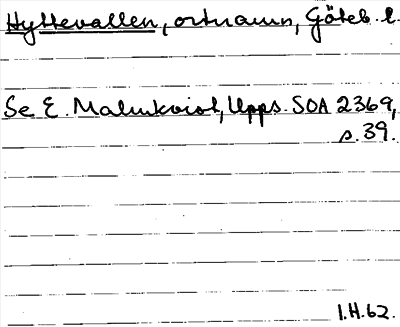 Hyltevallen, ortnamn, Göteb. l.
Se E. Malmkvist, Upps. SOA 2369,
s. 39.
I.H. 62.